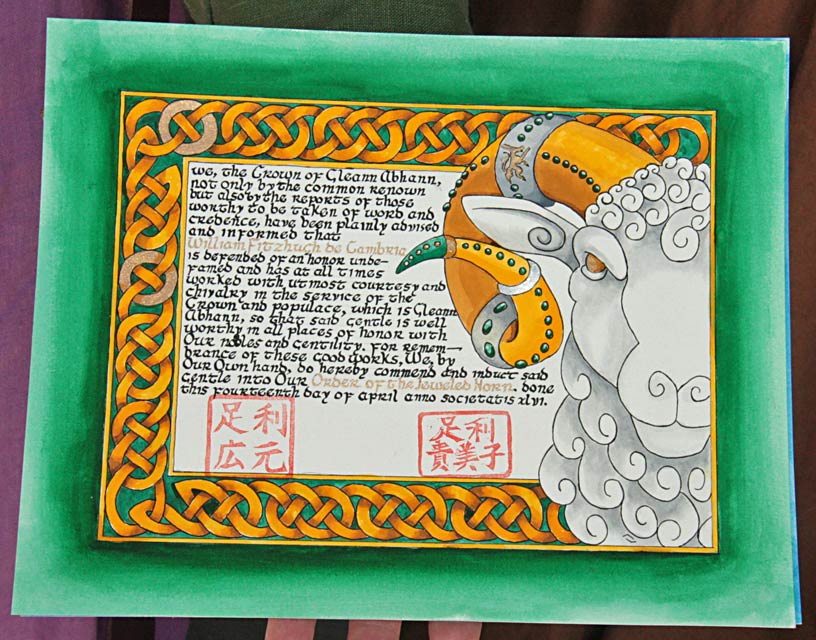 We, the Crown of Gleann Abhann,
not only by the common renown
but also by the reports of those
worthy to be taken of word and
credence, have been plainly advised
and informed that
William Fitzhugh de Cambria
is defended of an honor unde-
famed and has at all times
worked with utmost courtesy and
chivalry in the service of the
Crown and populace, which is Gleann
Abhann, so that said gentle is well
worthy in all places of honor with
Our nobles and gentility. For remem-
brance of these good works, We, by
Our Own hand, do hereby commend and induct said
gentle into Our Order of the Jeweled Horn. Done
this fourteenth day of april anno societatis xlvi.
足利
広元
足利
貴美子